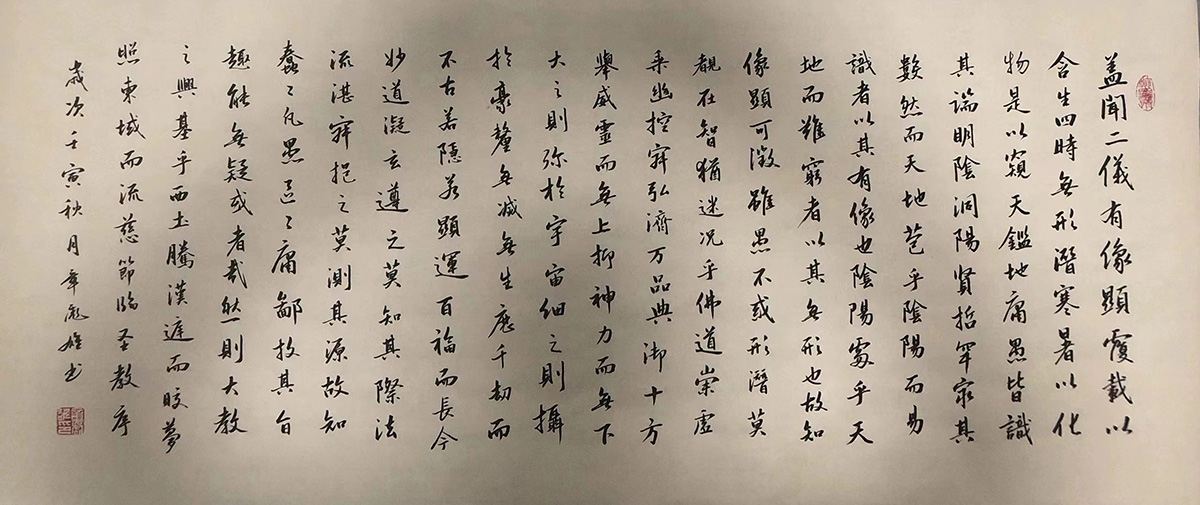 盖聞二儀有像顯覆載以
含生四時無形潛寒暑以化
物是以窺天鑑地庸愚皆識
其端明陰洞陽賢哲罕窮其
數然而天地苞乎陰陽而易
識者以其有像也陰陽處乎天
地而難窮者以其無形也故知
像顯可徵雖愚不或形潛莫
覩在智猶迷況乎佛道崇虛
乘幽控寂弘濟万品典御十方
舉威靈而無上抑神力而無下
大之則弥於宇宙細之則攝
於豪釐無滅無生歷千劫而
不古若隱若顯運百福而長今
妙道凝玄遵之莫知其際法
流湛寂挹之莫測其源故知
蠢〻凡愚區〻庸鄙投其旨
趣能無疑或者哉然則大教
之興基乎西土騰漢庭而皎夢
照東域而流慈節臨圣教序
歲次壬寅秋月韋彪雄书